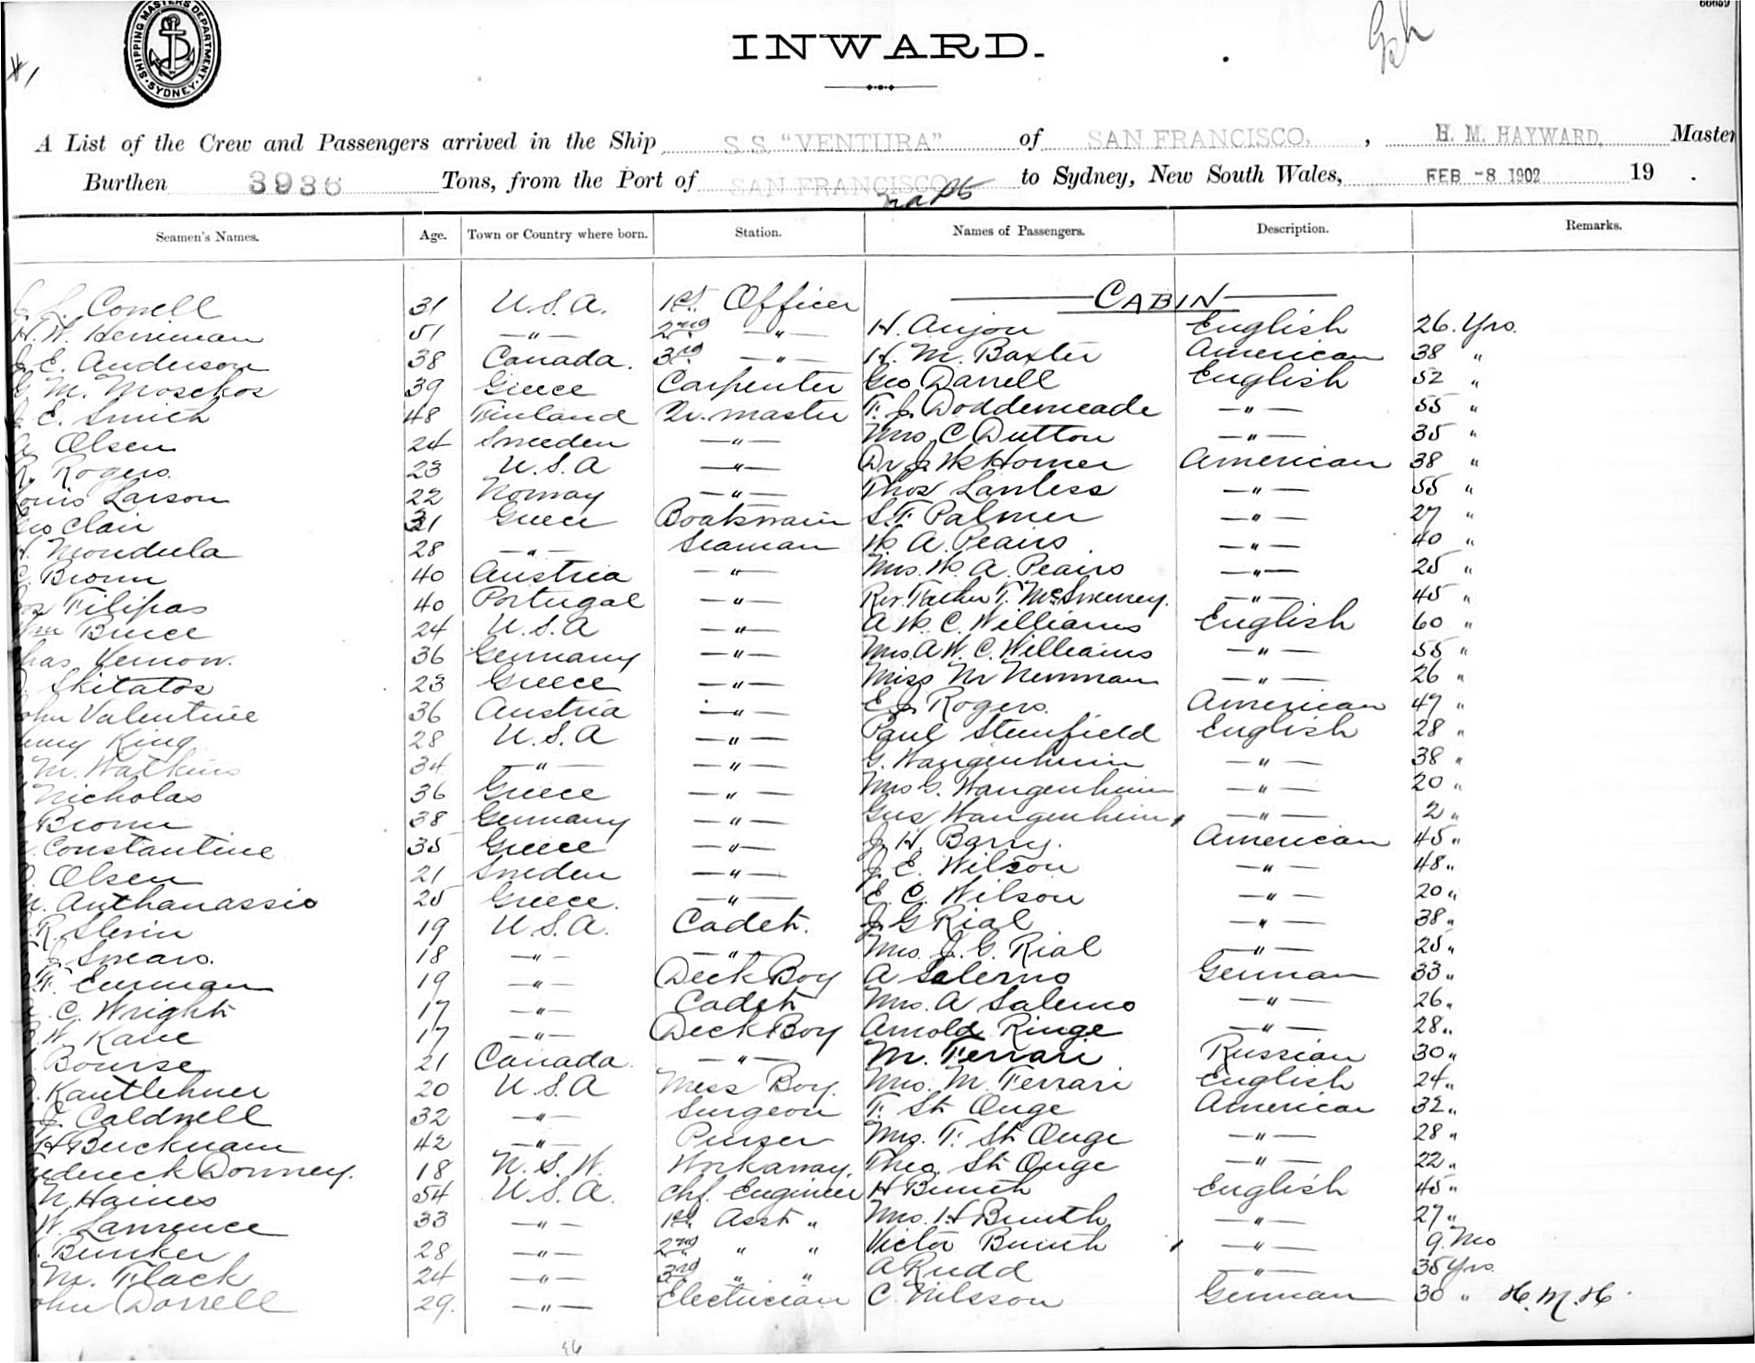 SHIPPING MASTERS DEPARTMENT · SYDNEY ·
66659
INWARD.
A List of the Crew and Passengers arrived in the Ship S.S. "VENTURA" of SAN FRANCISCO, , H. M. HAYWARD, Master
Burthen 3936 Tons, from the Port of SAN FRANCISCO to Sydney, New South Wales, FEB -8 1902 19 .
Seamen's Names. Age. Town or Country where born. Station. Names of Passengers. Description. Remarks.
CABIN
31 U.S.A. 1st. Officer
H. W. Herriman 51 —"— 2nd —"— H. Anjou English 26. Yrs.
J. E. Anderson 38 Canada. 3rd —"— H. M. Baxter American 38 "
G M. Moschos 39 Greece Carpenter Geo Darrell English 52 "
J. E. Smith 48 Finland Qr. master F. J. Doddemeade —"— 55 "
Olsen 24 Sweeden —"— Mrs C Dutton —"— 35 "
R. Rogers. 23 U.S.A —"— Dr J W Homer American 38 "
Louis Larson 22 Norway —"— Thos Lawless —"— 55 "
Geo Clair 31 Greece Boatswain S. F. Palmer —"— 27 "
Mondula 28 —"— Seaman W A. Peairs —"— 40 "
C. Brown 40 Austria —"— Mrs. W. A. Peairs —"— 25 "
Filipas 40 Portugal —"— Rev. Father T. McSweeney. —"— 45 "
Wm Bruce 24 U.S.A —"— A W. C. Williams English 60 "
Chas Vernon. 36 Germany —"— Mrs A W. C. Williams —"— 55 "
Skitatos 23 Greece —"— Miss M Newman —"— 26 "
John Valentine 36 Austria —"— E J. Rogers. American 47 "
King 28 U.S.A —"— Paul Steinfield English 28 "
M. Watkins 34 —"— —"— G. Wangenheim —"— 38 "
Nicholas 36 Greece —"— Mrs G. Wangenheim —"— 20 "
Brown 38 Germany —"— Gus Wangenheim —"— 2 "
Constantine 35 Greece —"— J. H. Barry. American 45 "
Olsen 21 Sweden —"— J. E. Wilson —"— 48 "
Anthanassio 25 Greece. —"— E. C. Wilson —"— 20 "
R. Slevin 19 U.S.A. Cadet. J G Rial —"— 38 "
J. Smears. 18 —"— —"— Mrs. J. G. Rial —"— 25 "
F. Enrman 19 —"— Deck Boy A Salerno German 33 "
C. Wright 17 —"— Cadet Mrs. A Salerno —"— 26 "
W. Kane 17 —"— Deck Boy Arnold Ringe —"— 28 "
Bourse 21 Canada —"— M. Ferrari Russian 30 "
Kantlehner 20 U.S.A Mess Boy. Mrs. M. Ferrari English 24 "
J. Caldwell 32 —"— Surgeon F. St Onge American 32 "
H Bucknam 42 —"— Purser Mrs. F. St Onge —"— 28 "
Frederick Downey. 18 N.S.W. Workaway. Theo. St Onge —"— 22 "
N Haines 54 U.S.A. Chf. Engineer H Bunth English 45 "
W. Lawrence 33 —"— 1st. Asst " Mrs. H Bunth —"— 27 "
Bunker 28 —"— 2nd " " Victor Bunth —"— 9. Mo
M. Flack 24 —"— 3rd " " A Rudd —"— 35 Yrs.
John Dorrell 29. —"— Electrician C. Nilsson German 30 " H. M. H.